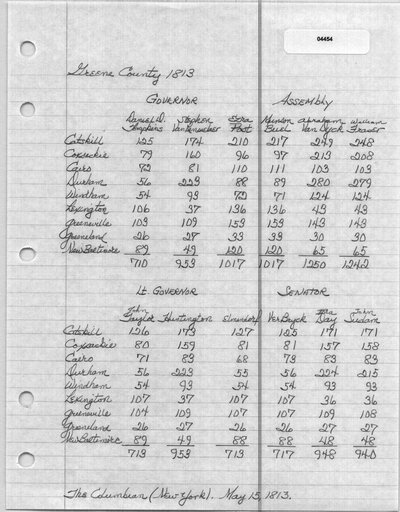 04454
Greene County 1813
Governor Assembly
Daniel D. Stephen Ezra Munson Abraham William
Tompkins Van Rensselaer Post Buel Van Dyck Fraser
Catskill 125 174 210 217 249 248
Coxsackie 79 160 96 97 213 208
Cairo 72 81 110 111 103 103
Durham 56 223 88 89 280 279
Windham 54 93 72 71 124 124
Lexington 106 37 136 136 43 43
Greenville 103 109 153 153 143 143
Greenland 26 27 33 33 30 30
New Baltimore 89 49 120 120 65 65
710 953 1017 1017 1250 1242
Lt. Governor Senator
John Ezra John
Taylor Huntington Elmendorf Ver Bryck Day Suydam
Catskill 126 173 127 125 171 171
Coxsackie 80 159 81 81 157 158
Cairo 71 83 68 73 83 83
Durham 56 223 55 56 224 215
Windham 54 93 54 54 93 93
Lexington 107 37 107 107 36 36
Greenville 104 109 107 107 109 108
Greenland 26 27 26 26 27 27
New Baltimore 89 49 88 88 48 48
713 953 713 717 948 940
The Columbian (New York). May 15, 1813.